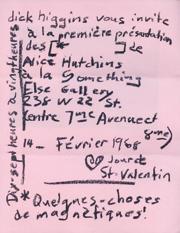 dick higgins vous invite
à la première présentation
des [* ] de
Alice Hutchins
à la Something
Else Gallery
238 W 22 St.
(entre 7ème Avenue et
8ème)
14 Février 1968
Jour de
St. Valentin
* Quelques-choses
de magnétiques!
Dix-sept heures à vingt heures